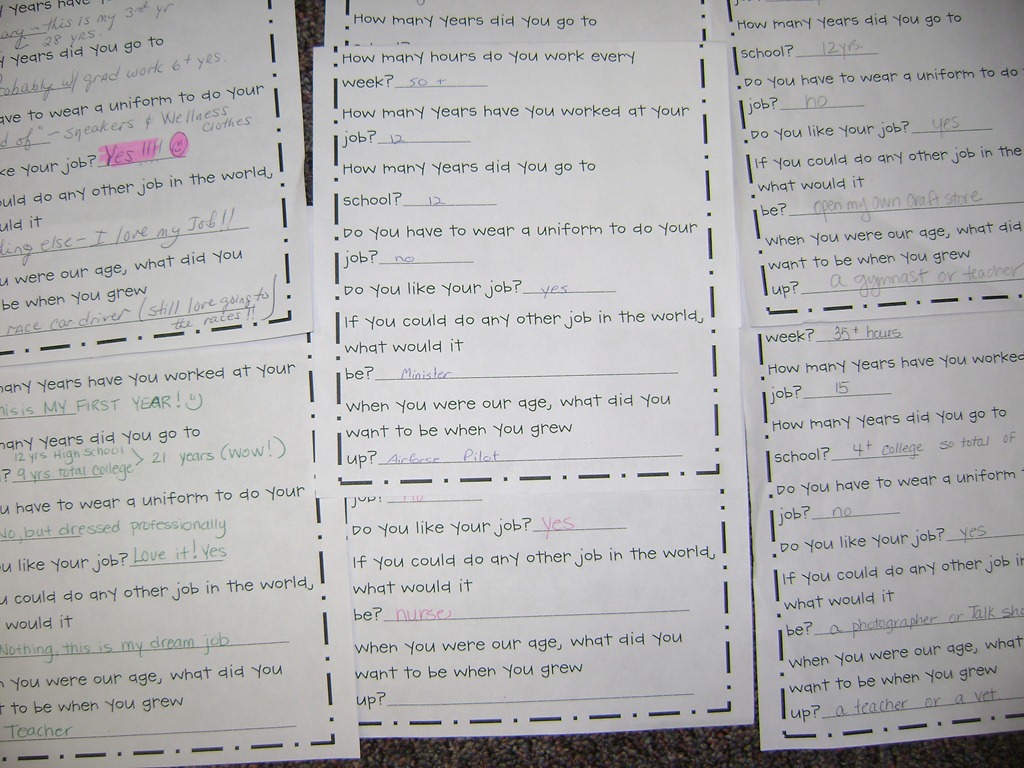 years have
- this is my 3rd yr
28 yrs.
years did you go to
probably w/ grad work 6+ yrs.
ave to wear a uniform to do your
d of" - sneakers & Wellness
clothes
ke your job? Yes !!!!
ould do any other job in the world,
uld it
ing else - I love my Job!!
u were our age, what did you
be when you grew
race car driver (still love going to
the races!!)
any years have you worked at your
his is MY FIRST YEAR!
many years did you go to
12 yrs High School
? 9 yrs total college > 21 years (wow!)
u have to wear a uniform to do your
No, but dressed professionally
u like your job? Love it! Yes
u could do any other job in the world,
would it
Nothing, this is my dream job
n you were our age, what did you
t to be when you grew
Teacher
How many years did you go to
How many hours do you work every
week? 50 +
How many years have you worked at your
job? 12
How many years did you go to
school? 12
Do you have to wear a uniform to do your
job? no
Do you like your job? yes
If you could do any other job in the world,
what would it
be? Minister
When you were our age, what did you
want to be when you grew
up? Airforse Pilot
job? no
Do you like your job? yes
If you could do any other job in the world,
what would it
be? nurse
When you were our age, what did you
want to be when you grew
up?
How many years did you go to
school? 12yrs.
Do you have to wear a uniform to do
job? no
Do you like your job? yes
If you could do any other job in the
what would it
be? open my own craft store
When you were our age, what did
want to be when you grew
up? a gymnast or teacher
week? 35+ hours
How many years have you worked
job? 15
How many years did you go to
school? 4+ college so total of
Do you have to wear a uniform
job? no
Do you like your job? yes
If you could do any other job in
what would it
be? a photographer or Talk sho
When you were our age, what
want to be when you grew
up? a teacher or a vet